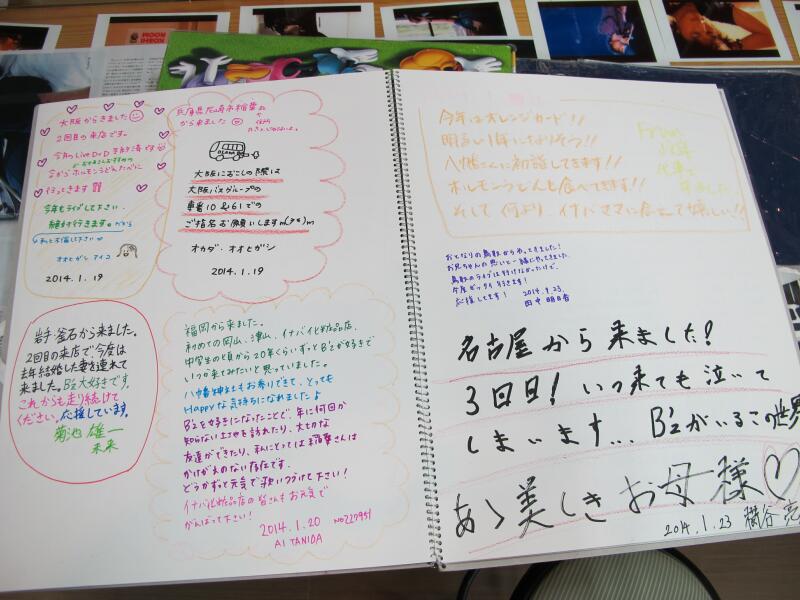 大阪からきました
2回目の来店です。
今からホルモンうどんたべに
行ってきます!!
今年もライブして下さい
絶対行きます。
オオヒガシ アイコ
2014.1.19
から来ました
大阪にお こしの際は
大阪バスグループの
車番10&61での
ご指名お願いしますm(_ _)m
オカダ・オオヒガシ
2014.1.19
岩手・釜石から来ました。
2回目の来店で、今度は
去年結婚した妻を連れて
来ました。B'z大好きです。
これからも走り続けて
ください。応援しています。
菊池 雄一
未来
福岡から来ました。
初めての岡山、津山、イナバ化粧品店、
中学生の頃から20年くらいずっとB'zが好きで
いつか来てみたいと思っていました。
八幡神社もお参りできて、とっても
Happyな気持ちになれました♪
B'zを好きになったことで、年に何回か
知らない土地を訪れたり、大切な
友達ができたり、私にとっては稲葉さんは
かけがえのない存在です。
どうかずっと元気で歌いつづけて下さい!
イナバ化粧品店の皆さんもお元気で
がんばって下さい!
2014.1.20 No227951
AI TANIDA
今年はオレンジカード!!
明るい1年になりそう!!
八幡さんに初詣してきます!!
ホルモンうどんも食べてきます!!
そして何より、イナバママに会えて嬉しい!!
おとなりの鳥取からやってきました!
お兄ちゃんの思いと一緒にやってきました。
鳥取のライブは行けなかったけど、
今度ゼッタイ行きます!
応援してます! 2014.1.23.
田中 明日香
名古屋から来ました!
3回目!いつ来ても泣いて
しまいます… B'zがいるこの世界
あゝ美しき お母様♡
2014.1.23